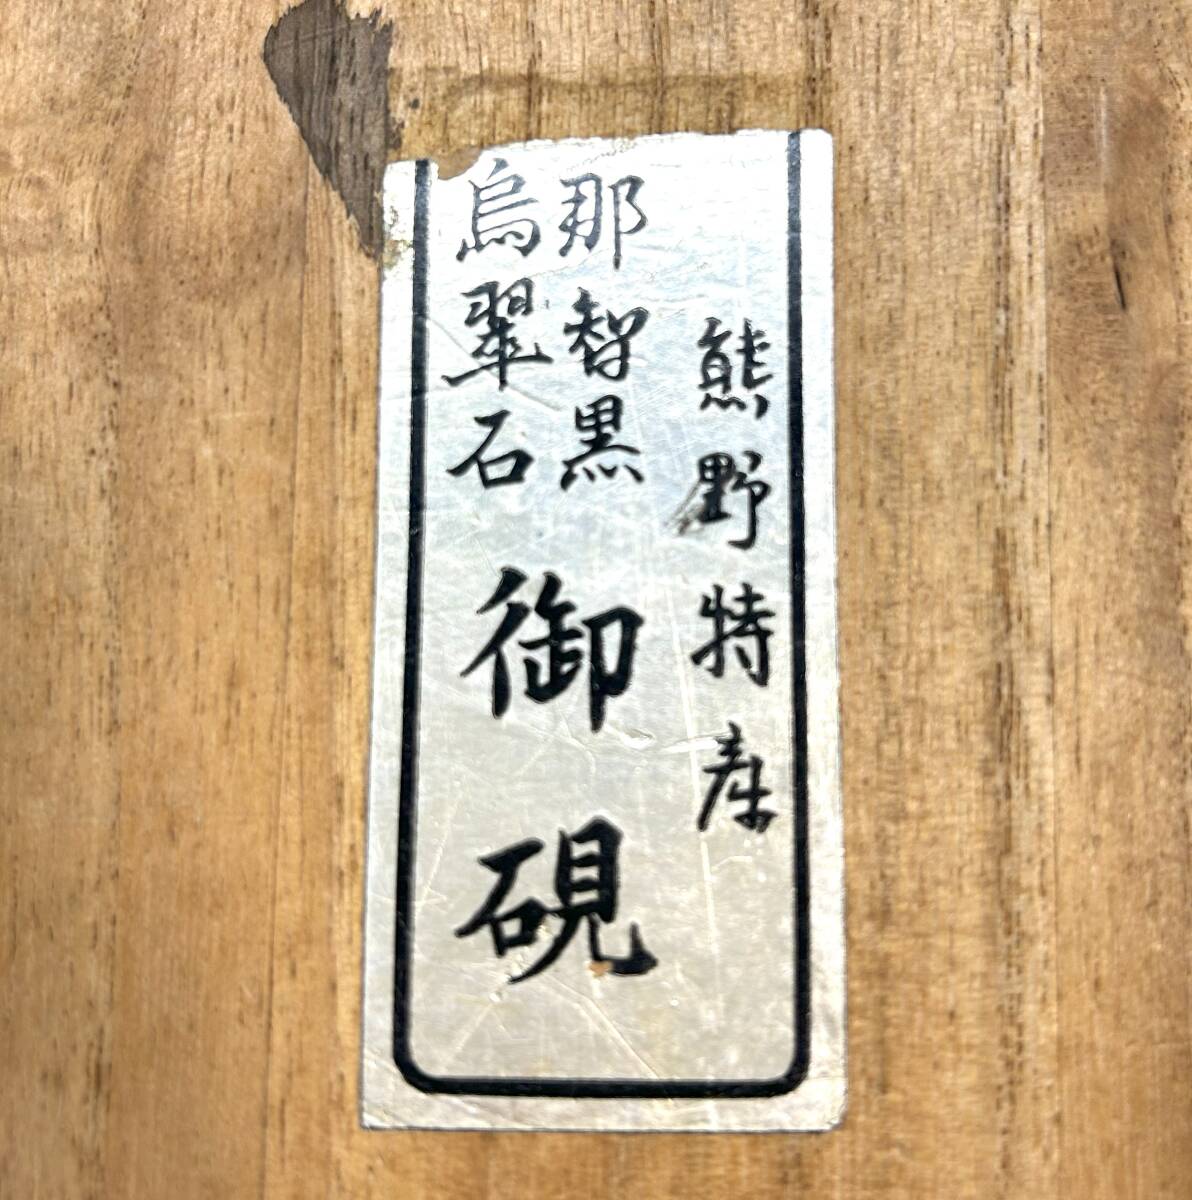 熊野特産
那智黒
烏翠石
御硯